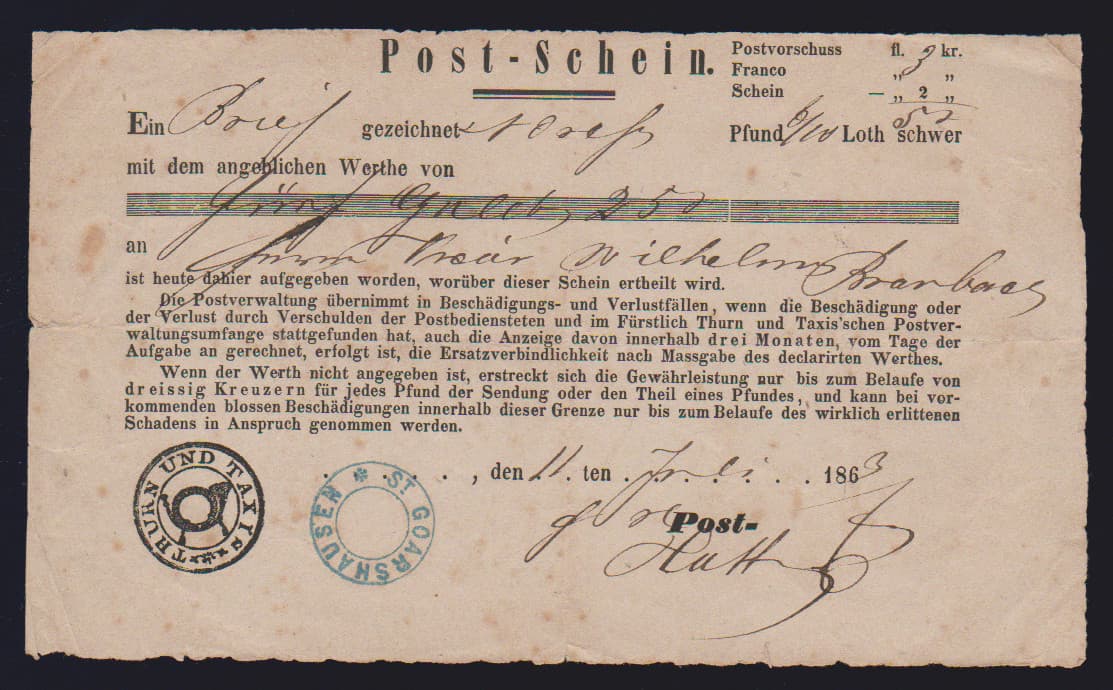 Post-Schein.
Postvorschuss fl. 3 kr.
Franco „ „
Schein — „ 2 „
Ein Brief gezeichnet Adresse Pfund 6/10 Loth schwer
mit dem angeblichen Werthe von
250
an
Herrn Wilhelm Braubach
ist heute dahier aufgegeben worden, worüber dieser Schein ertheilt wird.
Die Postverwaltung übernimmt in Beschädigungs- und Verlustfällen, wenn die Beschädigung oder
der Verlust durch Verschulden der Postbediensteten und im Fürstlich Thurn und Taxis'schen Postver-
waltungsumfange stattgefunden hat, auch die Anzeige davon innerhalb drei Monaten, vom Tage der
Aufgabe an gerechnet, erfolgt ist, die Ersatzverbindlichkeit nach Massgabe des declarirten Werthes.
Wenn der Werth nicht angegeben ist, erstreckt sich die Gewährleistung nur bis zum Belaufe von
dreissig Kreuzern für jedes Pfund der Sendung oder den Theil eines Pfundes, und kann bei vor-
kommenden blossen Beschädigungen innerhalb dieser Grenze nur bis zum Belaufe des wirklich erlittenen
Schadens in Anspruch genommen werden.
, den 11. ten Juli 1863
Post-
THURN UND TAXIS
ST GOARSHAUSEN